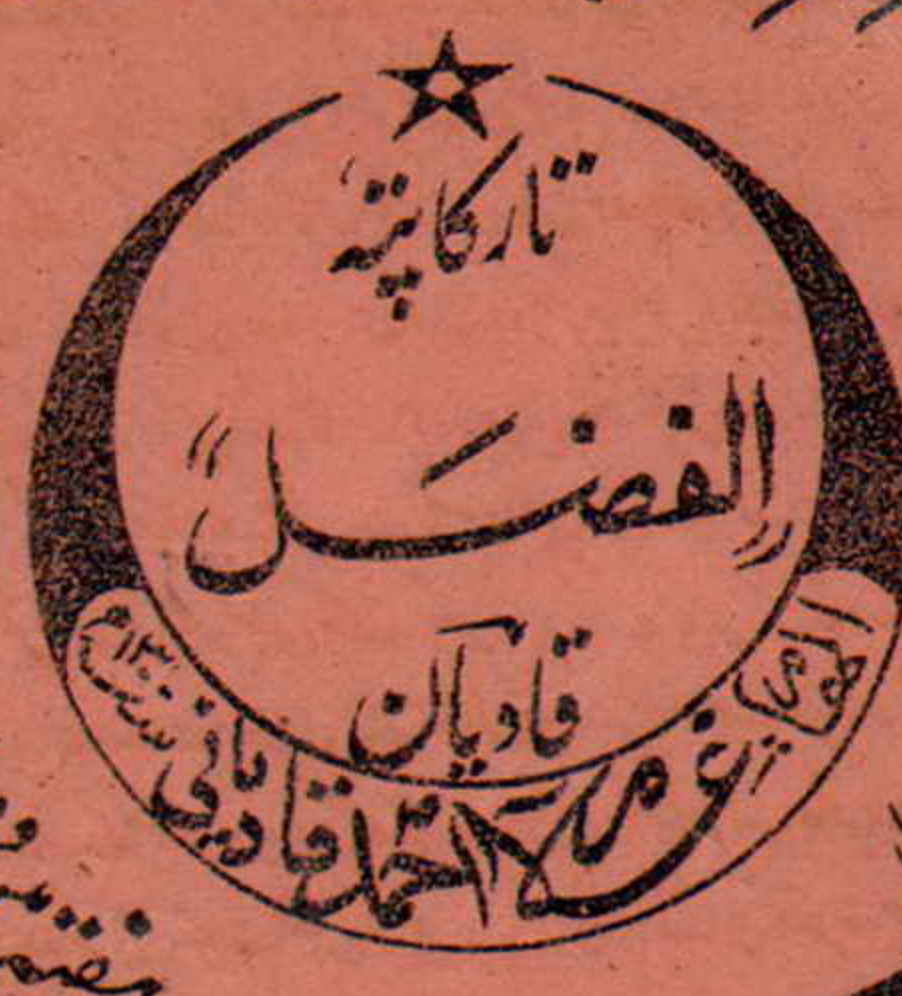 تار کا پتہ
"الفضل"
قادیان
غلام احمد قادیانی ۱۳۰۰